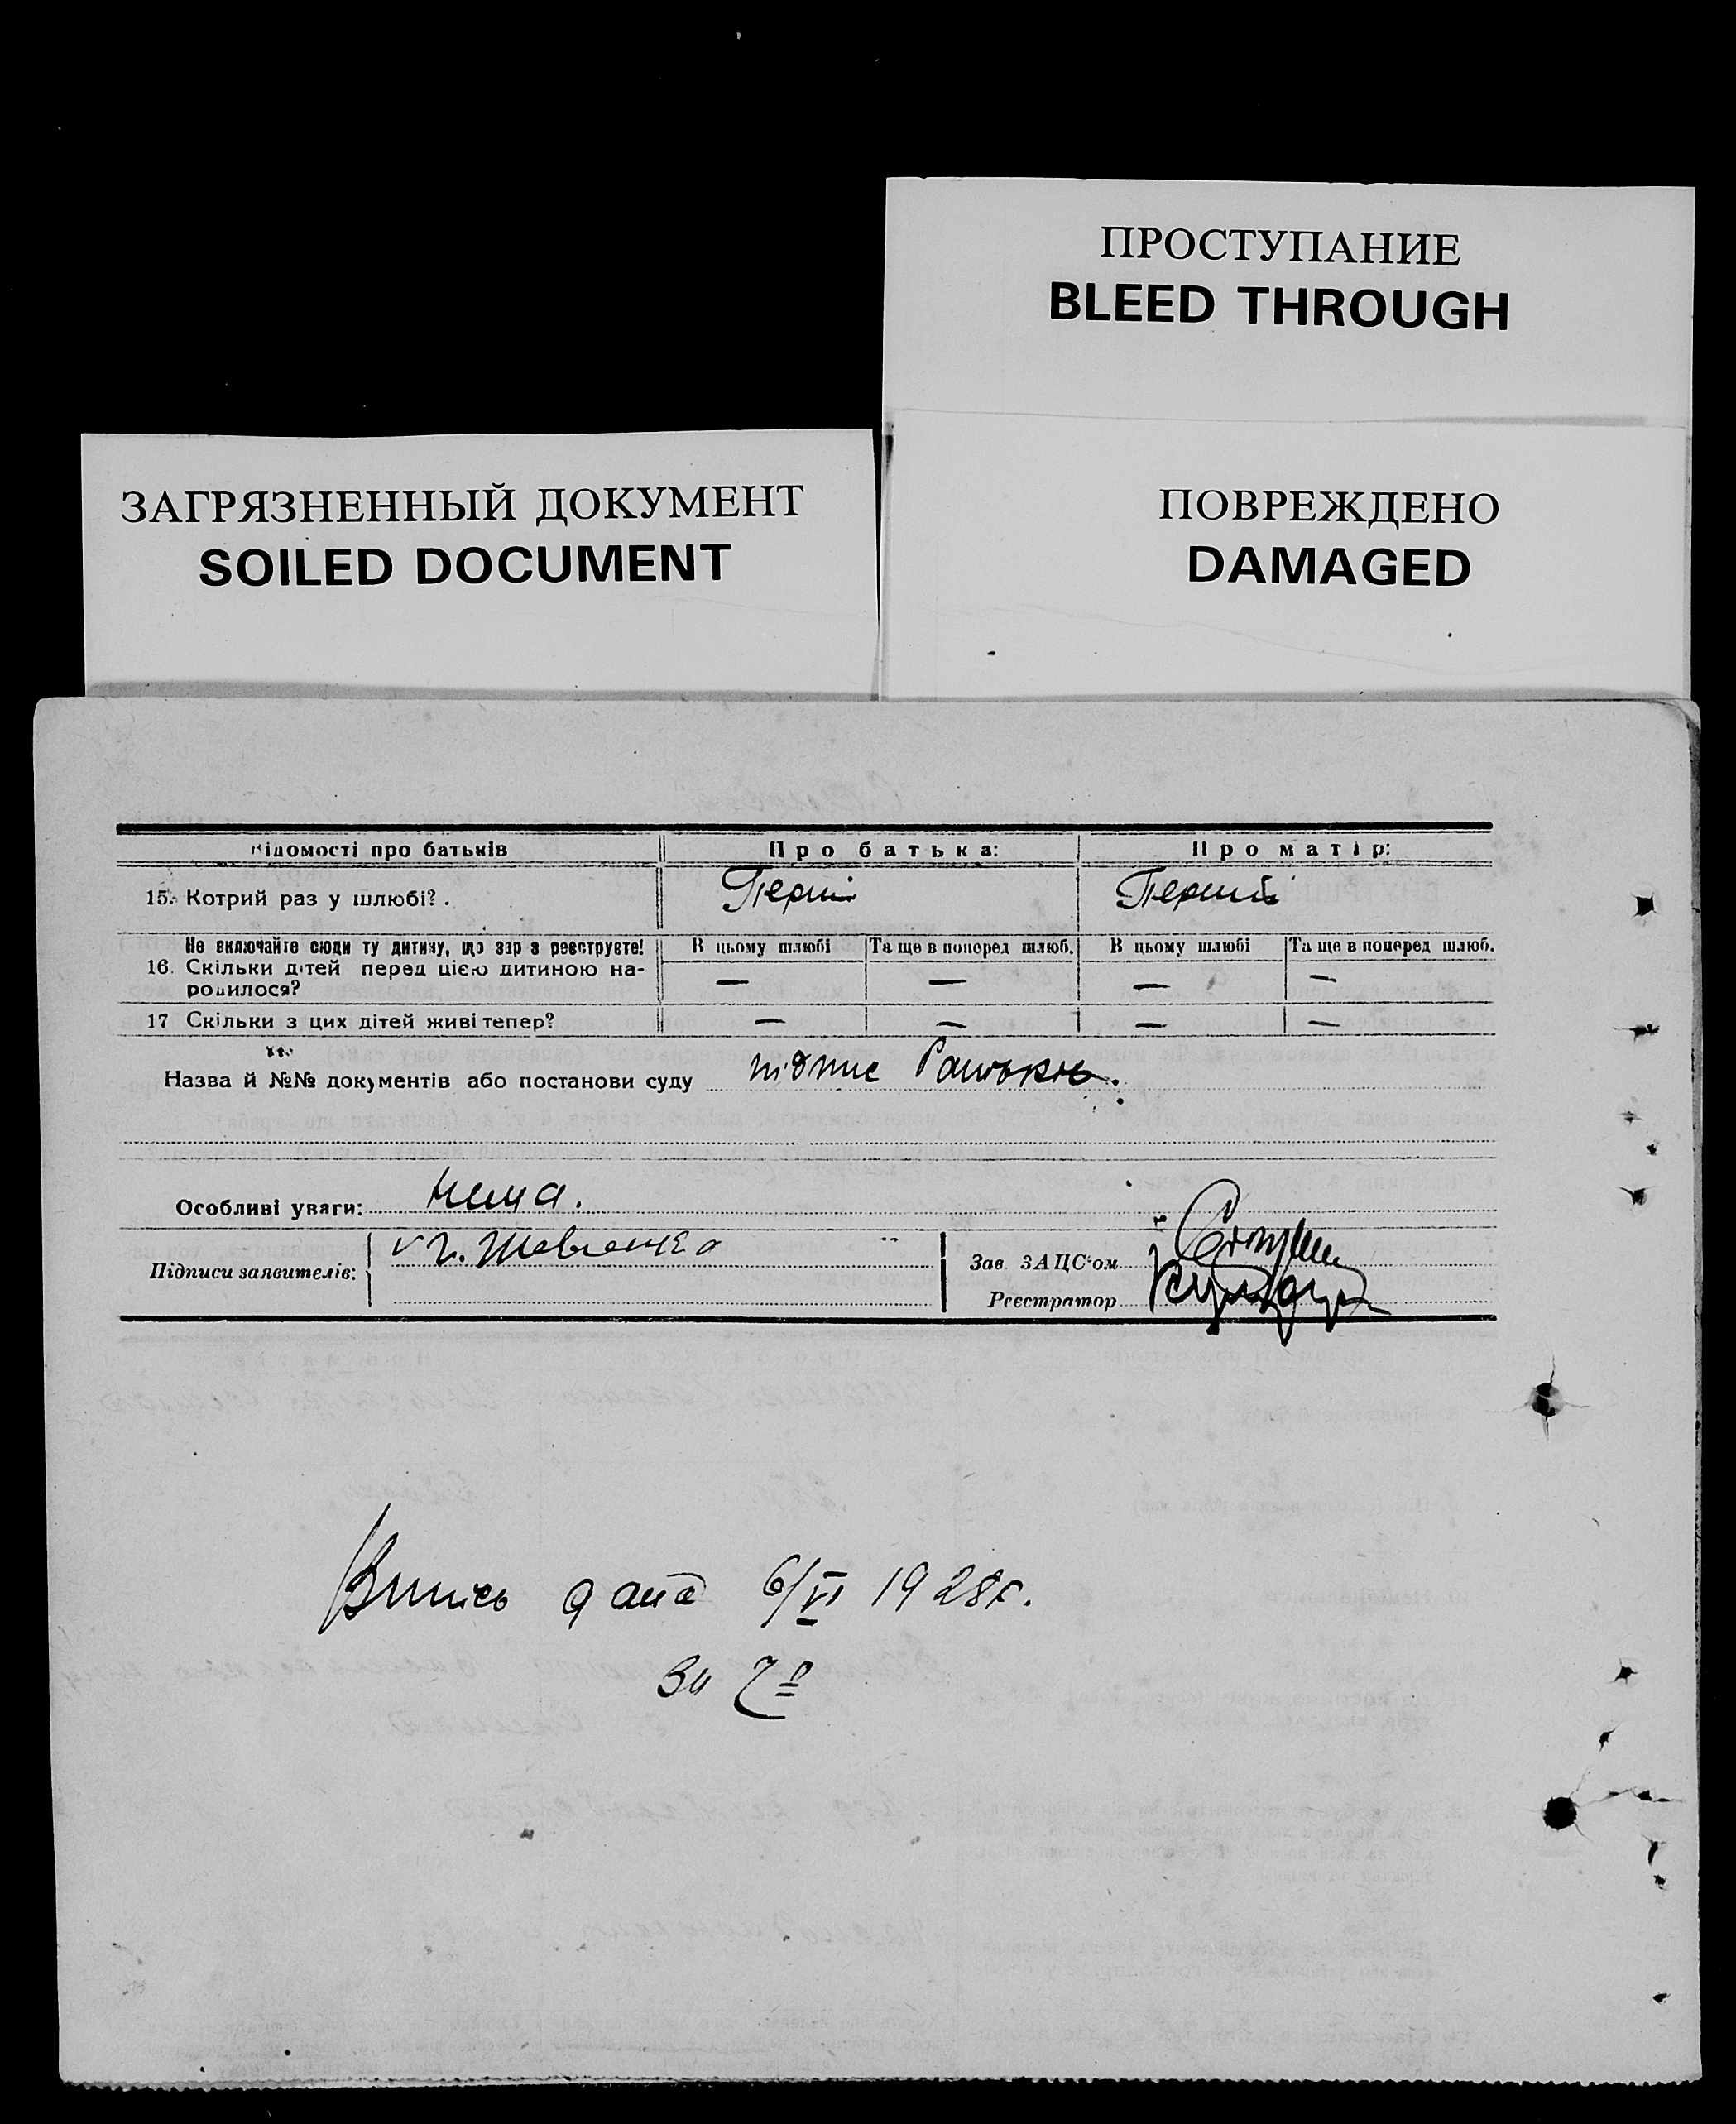 ПРОСТУПАНИЕ
BLEED THROUGH
ЗАГРЯЗНЕННЫЙ ДОКУМЕНТ
SOILED DOCUMENT
ПОВРЕЖДЕНО
DAMAGED
Відомості про батьків Про батька: Про матір:
15. Котрий раз у шлюбі?. Перший Перший
Не включайте сюди ту дитину, що зараз реєструєте! В цьому шлюбі Та ще в поперед шлюб. В цьому шлюбі Та ще в поперед шлюб.
16. Скільки дітей перед цією дитиною на- — — — —
родилося?
17 Скільки з цих дітей живі тепер? — — — —
Назва й №№ документів або постанови суду підпис
Особливі уваги: Нема.
Підписи заявителів: Шевченко
Зав ЗАЦС'ом
Реєстратор
Випись дана 6/VI 1928р.
За №